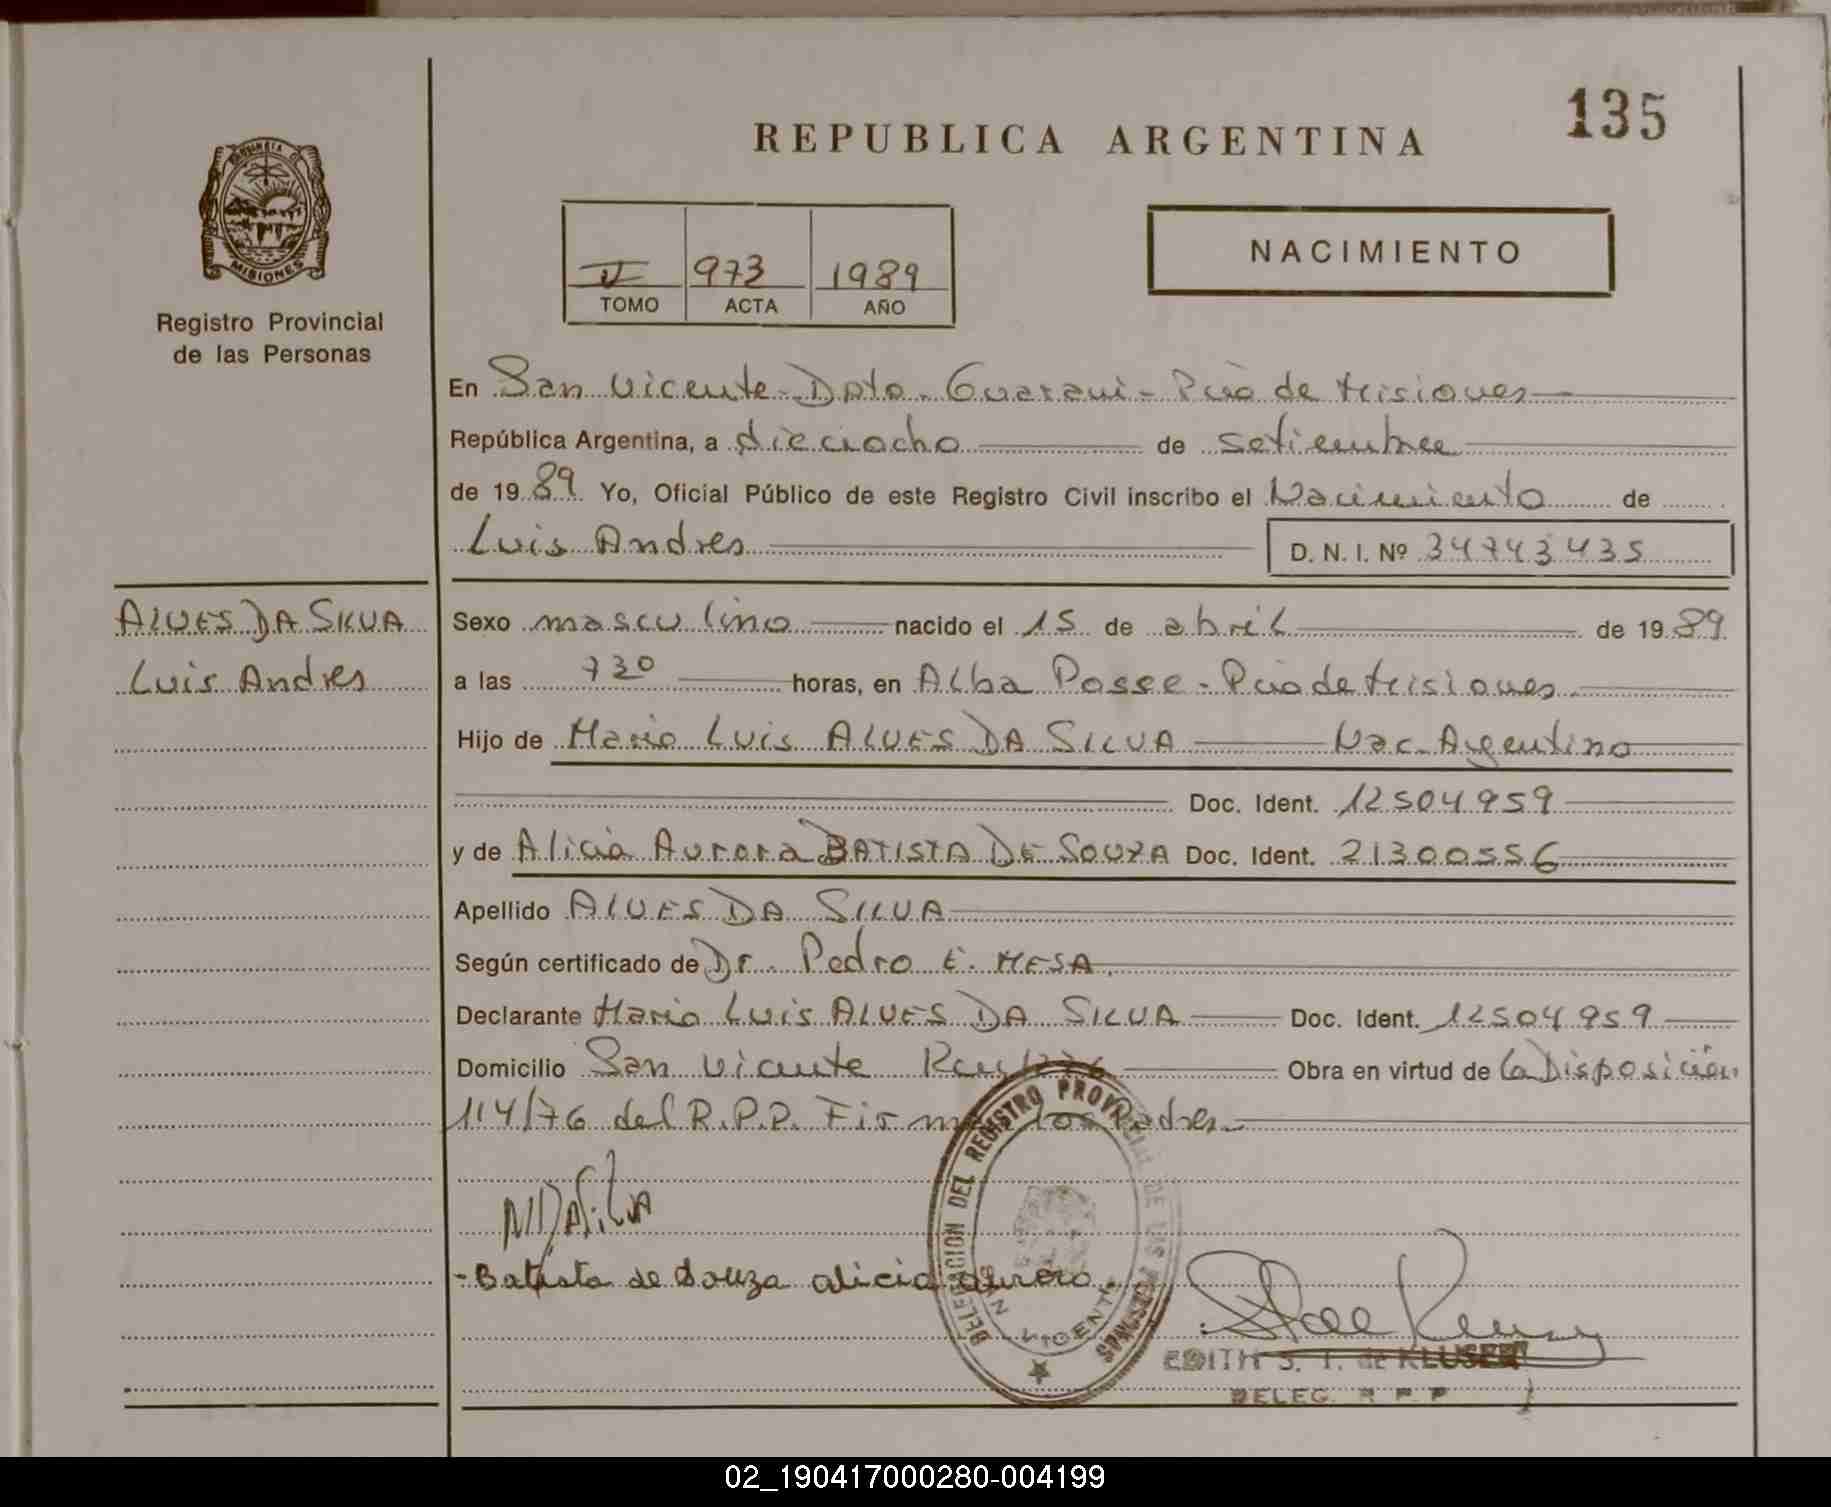 135
REPUBLICA ARGENTINA
MISIONES
Registro Provincial
de las Personas
973 1989
TOMO ACTA AÑO
NACIMIENTO
En San Vicente - Dpto. Guarani - Pcia de Misiones
República Argentina, a dieciocho de setiembre
de 1989 Yo, Oficial Público de este Registro Civil inscribo el Nacimiento de
Luis Andres D. N. I. Nº 34743435
ALVES DA SILVA
Luis Andres
Sexo masculino nacido el 15 de abril de 1989
a las 730 horas, en Alba Posse - Pcia de Misiones
Hijo de Mario Luis ALVES DA SILVA Nac. Argentino
Doc. Ident. 12504959
y de Alicia Aurora BATISTA DE SOUZA Doc. Ident. 21300556
Apellido ALVES DA SILVA
Según certificado de Dr. Pedro E. MESA
Declarante Mario Luis ALVES DA SILVA Doc. Ident. 12504959
Domicilio San Vicente Obra en virtud de la Disposición
114/76 del R.P.P. Firman los Padres
- Batista de Souza alicia aurora
DELEGACION DEL REGISTRO PROVINCIAL DE LAS PERSONAS
SAN VICENTE
EDITH S. T. de KLUSER
DELEG. R P P
02_190417000280-004199